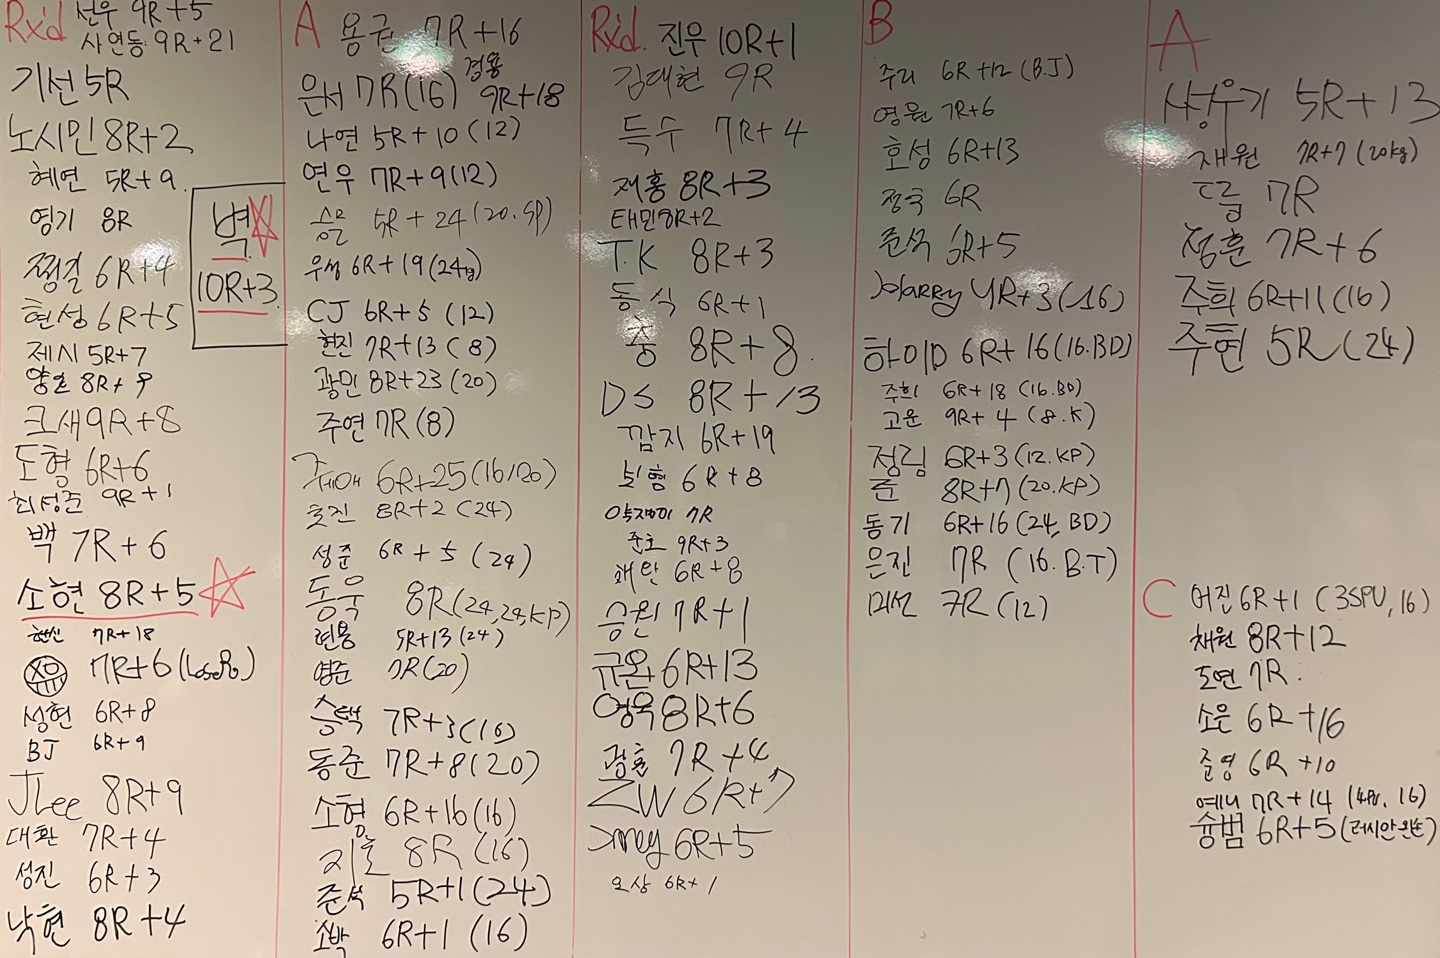 Rx'd 선우 9R+5
사연동 9R+21
기선 5R
노시민 8R+2
혜연 5R+9
영기 8R
쩡길 6R+4
현성 6R+5
제시 5R+7
양호 8R+9
크새 9R+8
도형 6R+6
최성준 9R+1
백 7R+6
소현 8R+5
현신 7R+18
7R+6
성현 6R+8
BJ 6R+9
JLee 8R+9
대환 7R+4
성진 6R+3
낙현 8R+4
벽
10R+3
A 용권 7R+16
은서 7R(16)
경용 9R+18
나연 5R+10(12)
연우 7R+9(12)
승문 5R+24(20.SP)
우성 6R+19(24kg)
CJ 6R+5(12)
현진 7R+13(8)
광민 8R+23(20)
주연 7R(8)
6R+25(16/20)
효진 8R+2(24)
성준 6R+5(24)
동욱 8R(24,24,KP)
현용 5R+13(24)
영준 7R(20)
승택 7R+3(16)
동준 7R+8(20)
소형 6R+16(16)
지훈 8R(16)
준석 5R+1(24)
소박 6R+1(16)
Rx'd. 진우 10R+1
김대현 9R
득수 7R+4
재홍 8R+3
태민 8R+2
T.K 8R+3
동식 6R+1
충 8R+8
DS 8R+13
깜지 6R+19
보형 6R+8
약쟁이 7R
준호 9R+3
채란 6R+8
승원 7R+1
규온 6R+13
영욱 8R+6
광훈 7R+4
ZW 6R+7
6R+5
오상 6R+1
B
주리 6R+12(BJ)
영원 7R+6
호성 6R+13
정욱 6R
준석 6R+5
Harry 4R+3(16)
하이D 6R+16(16.BD)
주희 6R+18(16.BD)
고운 9R+4(8.K)
정림 6R+3(12.KP)
준 8R+7(20.KP)
동기 6R+16(24,BD)
은진 7R(16.B.T)
미선 7R(12)
A
상우기 5R+13
재원 7R+7(20kg)
드룹 7R
정훈 7R+6
주희 6R+11(16)
주현 5R(24)
C 어진 6R+1(3SPU,16)
채원 8R+12
도연 7R
소운 6R+16
준영 6R+10
예니 7R+14(4PU,16)
슝범 6R+5